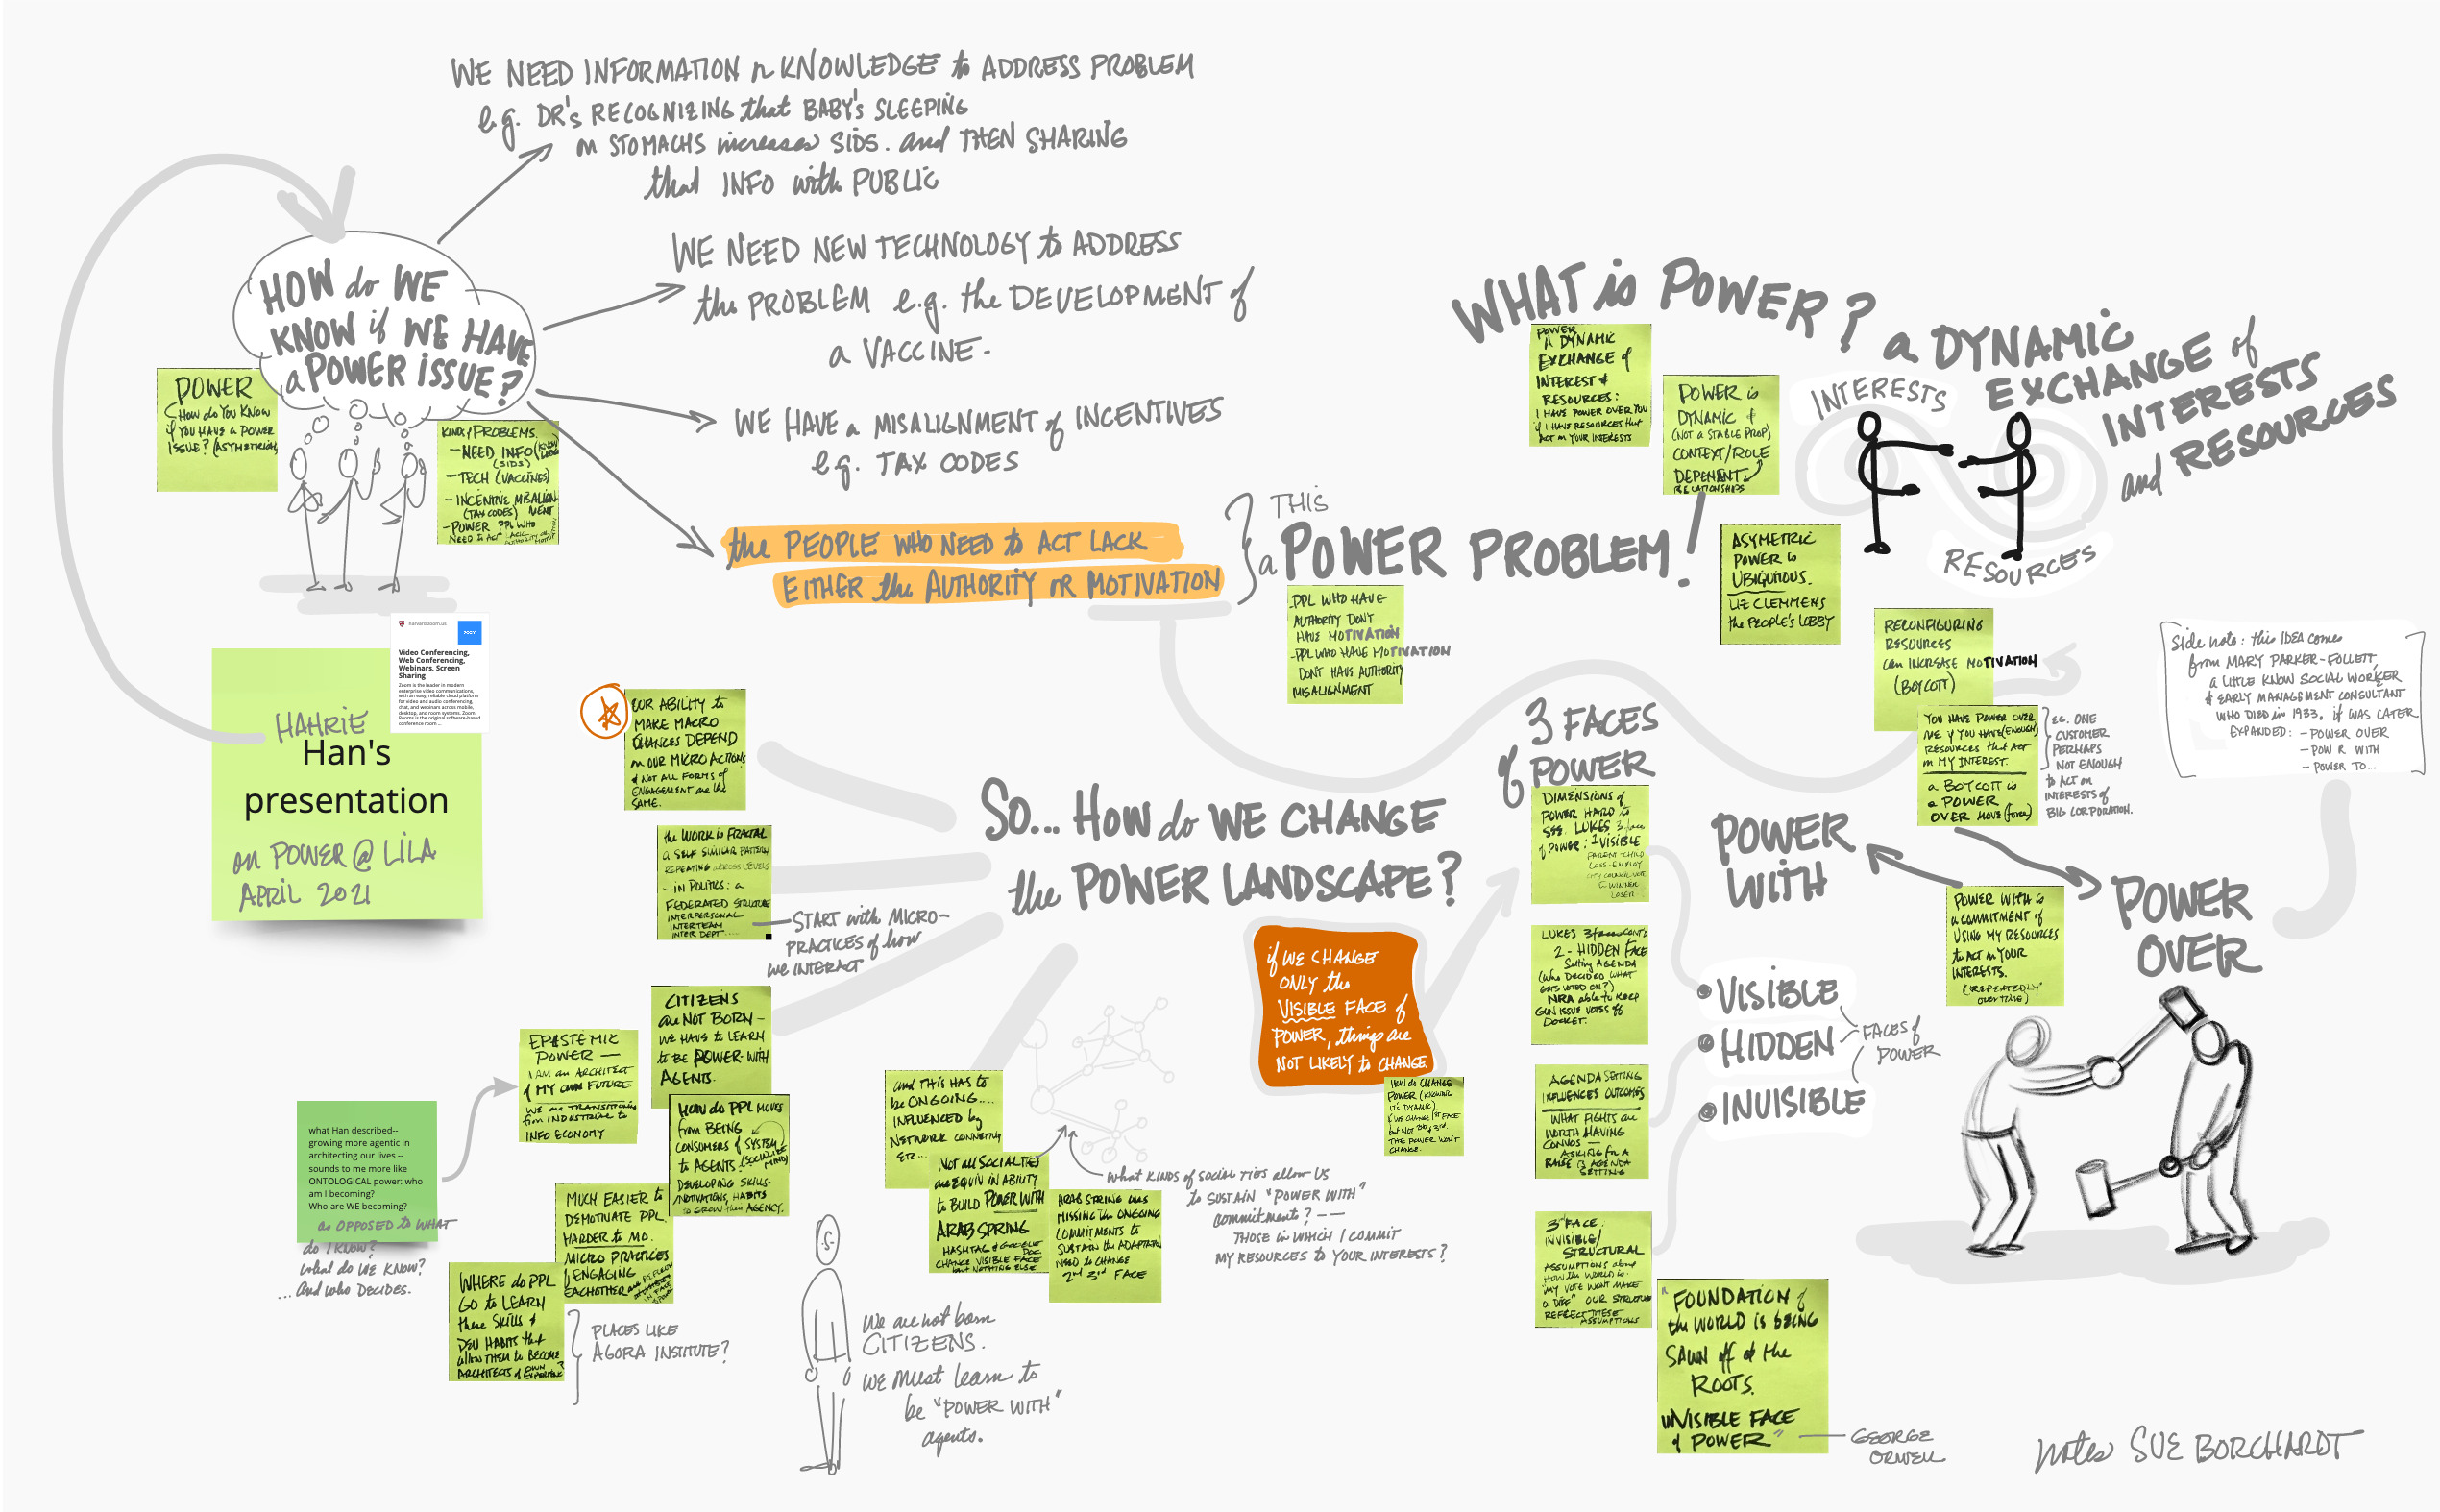 WE NEED INFORMATION n KNOWLEDGE to ADDRESS PROBLEM
e.g. DR's RECOGNIZING that BABY'S SLEEPING
on STOMACHS increases SIDS. and THEN SHARING
that INFO with PUBLIC
HOW do WE
KNOW if WE HAVE
a POWER ISSUE?
WE NEED NEW TECHNOLOGY to ADDRESS
the PROBLEM e.g. the DEVELOPMENT of
a VACCINE.
WE HAVE a MISALIGNMENT of INCENTIVES
e.g. TAX CODES
the PEOPLE WHO NEED to ACT LACK
EITHER the AUTHORITY or MOTIVATION
THIS
a POWER PROBLEM!
POWER
How do YOU KNOW
if YOU HAVE a POWER
ISSUE? (ASYMETRICAL)
KINDS of PROBLEMS.
- NEED INFO
(SIDS)
- TECH (VACCINES)
- INCENTIVE MISALIGN
(TAX CODES) MENT
- POWER PPL WHO
NEED to ACT LACK
harvard.zoom.us
zoom
Video Conferencing,
Web Conferencing,
Webinars, Screen
Sharing
Zoom is the leader in modern
enterprise video communications,
with an easy, reliable cloud platform
for video and audio conferencing,
chat, and webinars across mobile,
desktop, and room systems. Zoom
Rooms is the original software-based
conference room ...
HAHRIE
Han's
presentation
on POWER @ LILA
APRIL 2021
- PPL WHO HAVE
AUTHORITY DON'T
HAVE MOTIVATION
- PPL WHO HAVE MOTIVATION
DON'T HAVE AUTHORITY
MISALIGNMENT
WHAT is POWER?
a DYNAMIC
EXCHANGE of
INTERESTS
and RESOURCES
POWER
A DYNAMIC
EXCHANGE of
INTEREST &
RESOURCES:
I HAVE POWER OVER YOU
if I HAVE RESOURCES that
ACT on YOUR INTERESTS
POWER is
DYNAMIC &
(NOT A STABLE PROP)
CONTEXT/ROLE
DEPENANT
RELATIONSHIPS
INTERESTS
RESOURCES
ASYMETRIC
POWER is
UBIQUITOUS.
LIZ CLEMMENS
the PEOPLE'S LOBBY
RECONFIGURING
RESOURCES
can INCREASE MOTIVATION
(BOYCOTT)
YOU HAVE POWER OVER
ME if YOU HAVE (ENOUGH)
RESOURCES that ACT
on MY INTEREST.
a BOYCOTT is
a POWER
OVER MOVE (force)
E.G. ONE
CUSTOMER
PERHAPS
NOT ENOUGH
to ACT on
INTERESTS of
BIG CORPORATION.
Side note: this IDEA comes
from MARY PARKER-FOLLETT,
a LITTLE KNOW SOCIAL WORKER
& EARLY MANAGEMENT CONSULTANT
WHO DIED in 1933. it WAS LATER
EXPANDED: - POWER OVER
- POW R WITH
- POWER TO...
OUR ABILITY to
MAKE MACRO
CHANCES DEPEND
on OUR MICRO ACTIONS
& NOT ALL FORMS of
ENGAGEMENT are the
SAME.
the WORK is FRACTAL
a SELF SIMILAR PATTERN
REPEATING ACROSS LEVELS
- IN POLITICS: a
FEDERATED STRUCTURE
INTERPERSONAL
INTERTEAM
INTER DEPT....
START with MICRO-
PRACTICES of how
we INTERACT
SO... HOW do WE CHANGE
the POWER LANDSCAPE?
3 FACES
of POWER
DIMENSIONS of
POWER HARD to
SEE. LUKES 3 face
of POWER: 1 VISIBLE
PARENT-CHILD
BOSS-EMPLOY
CITY COUNCIL VOTE
WINNER
LOSER
LUKES 3 faces CONT'D
2 - HIDDEN FACE
Setting AGENDA
(Who DECIDED WHAT
GETS VOTED ON?)
NRA able to KEEP
GUN ISSUE VOTES off
DOCKET.
AGENDA SETTING
INFLUENCES OUTCOMES
WHAT FIGHTS are
WORTH HAVING
CONVOS —
ASKING for A
RAISE is AGENDA
SETTING
3rd FACE.
INVISIBLE/
STRUCTURAL
ASSUMPTIONS about
HOW the WORLD is.
"MY VOTE WON'T MAKE
a DIFF" OUR STRUCTURE
REFLECT THESE
ASSUMPTIONS
POWER
WITH
POWER
OVER
POWER WITH is
a COMMITMENT of
USING MY RESOURCES
to ACT on YOUR
INTERESTS.
(REPEATEDLY
OVER TIME)
VISIBLE
HIDDEN
INVISIBLE
FACES of
POWER
if WE CHANGE
ONLY the
VISIBLE FACE of
POWER, things are
NOT LIKELY to CHANGE.
HOW do CHANGE
POWER (KNOWING
IT'S DYNAMIC)
if WE CHANGE 1st FACE
but NOT 2nd & 3rd.
THE POWER WON'T
CHANGE.
CITIZENS
are NOT BORN —
WE HAVE to LEARN
to BE POWER-WITH
AGENTS.
EPISTEMIC
POWER —
I AM an ARCHITECT
of MY OWN FUTURE
WE are TRANSITIONING
from INDUSTRIAL to
INFO ECONOMY
what Han described--
growing more agentic in
architecting our lives --
sounds to me more like
ONTOLOGICAL power: who
am I becoming?
Who are WE becoming?
as OPPOSED to WHAT
do I KNOW?
What do WE KNOW?
... And who DECIDES.
HOW do PPL MOVE
from BEING
CONSUMERS of SYSTEM
to AGENTS (SOCIALIZE
MIND)
DEVELOPING SKILLS-
MOTIVATIONS, HABITS
to GROW their AGENCY.
MUCH EASIER to
DEMOTIVATE PPL.
HARDER to MO.
MICRO PRACTICES
of ENGAGING
EACHOTHER
WHERE do PPL
GO to LEARN
these SKILLS &
DEV HABITS that
allow THEM to BECOME
ARCHITECTS of OWN EXPERIENCE?
PLACES LIKE
AGORA INSTITUTE?
and THIS HAS to
be ONGOING....
INFLUENCED by
NETWORK CONNECTIVITY
ETC...
Not all SOCIAL TIES
are EQUIV in ABILITY
to BUILD POWER WITH
ARAB SPRING
HASHTAG & GOOGLE DOC
CHANGE VISIBLE FACE
but NOTHING ELSE
ARAB STRING was
MISSING the ONGOING
COMMITMENTS to
SUSTAIN the ADAPTATION
NEED to CHANGE
2nd 3rd FACE
what KINDS of SOCIAL TIES allow US
to SUSTAIN "POWER WITH"
commitments? --
THOSE in WHICH I COMMIT
MY RESOURCES to YOUR INTERESTS?
We are not born
CITIZENS.
WE must learn to
be "POWER WITH"
agents.
"FOUNDATION of
the WORLD is BEING
SAWN off at the
ROOTS.
INVISIBLE FACE
of POWER"
GEORGE
ORWELL
notes SUE BORCHARDT